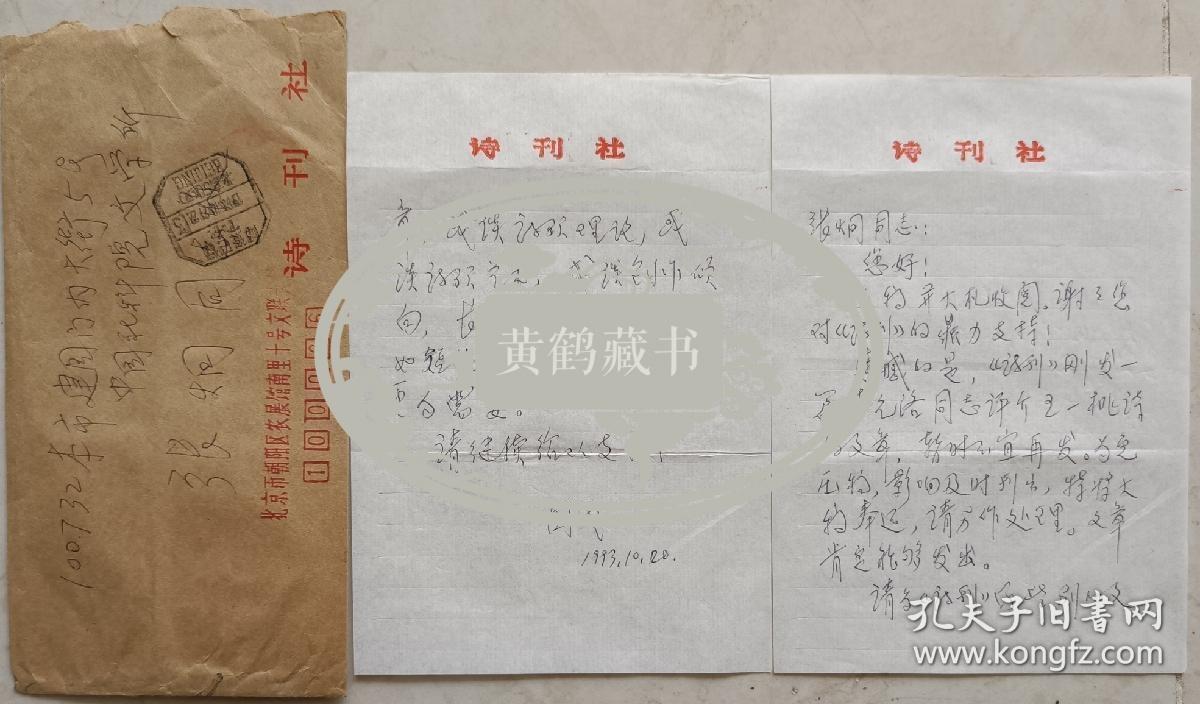 100732 本市建国门内大街5号
中国社科院文学所
张炯同
诗刊社
北京市朝阳区农展馆南里十号文联
100026
BEIJING
诗刊社
或谈诗歌理论，或
谈诗歌
谈创作倾
向，
如
为当
请继续给以支
1993.10.20.
诗刊社
张炯同志：
您好！
并大札收阅。谢谢您
对《 刊》的鼎力支持！
的是，《诗刊》刚发一
元洛同志评介王一桃诗
文章，暂时不宜再发。为免
压稿，影响及时刊出，特将大
稿奉还，请另作处理。文章
肯定能够发出。
请
黄鹤藏书
孔夫子旧书网
www.kongfz.com